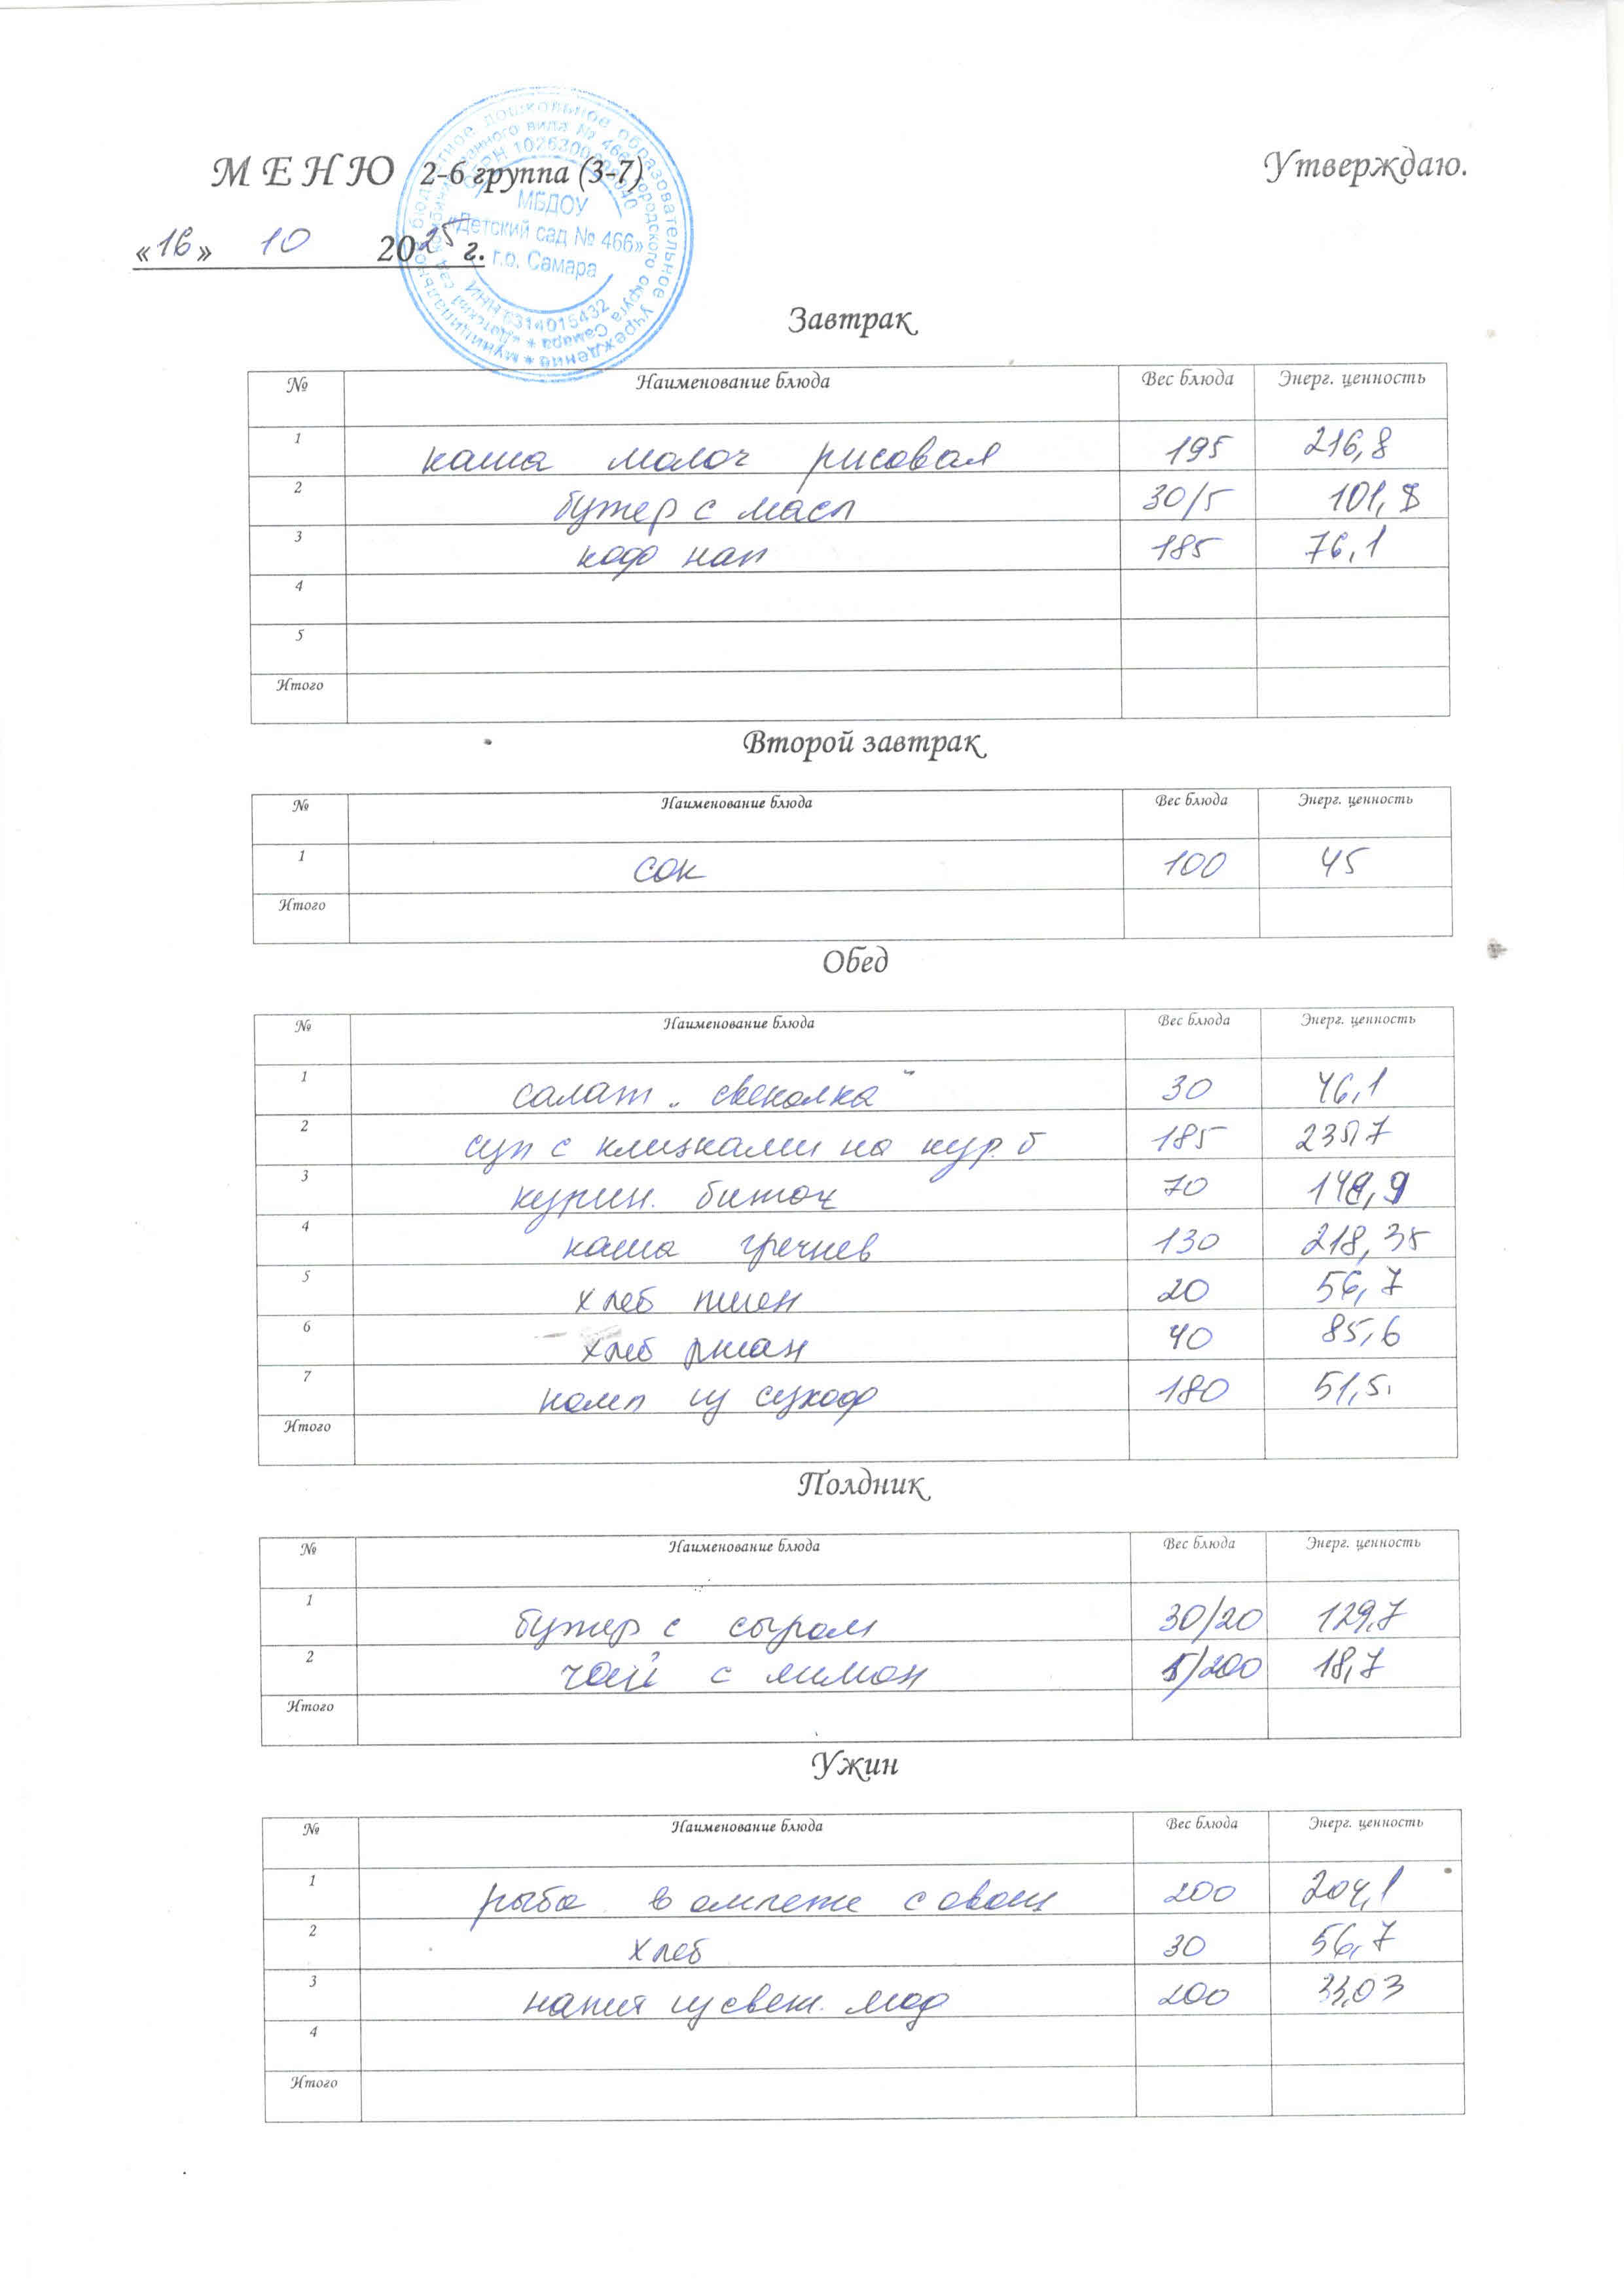 МЕНЮ 2-6 группа (3-7) Утверждаю.
«16» 10 2025 г.
МБДОУ
«Детский сад № 466»
г.о. Самара
ИНН 6314015432
Завтрак
№ Наименование блюда Вес блюда Энерг. ценность
1 каша молоч рисовая 195 216,8
2 бутер с масл 30/5 101,8
3 коф нап 185 76,1
4
5
Итого
Второй завтрак
№ Наименование блюда Вес блюда Энерг. ценность
1 сок 100 45
Итого
Обед
№ Наименование блюда Вес блюда Энерг. ценность
1 салат. свеколка 30 46,1
2 суп с клецками на кур. б 185
3 курин. биточ 70
4 каша гречнев 130 218,35
5 хлеб пшен 20 56,7
6 хлеб ржан 40 85,6
7 комп из сухоф 180 51,5
Итого
Полдник
№ Наименование блюда Вес блюда Энерг. ценность
1 бутер с сыром 30/20 129,7
2 чай с лимон 5/200 18,7
Итого
Ужин
№ Наименование блюда Вес блюда Энерг. ценность
1 рыба в омлете с овощ 200 204,1
2 хлеб 30 56,7
3 из свеж. 200
4
Итого